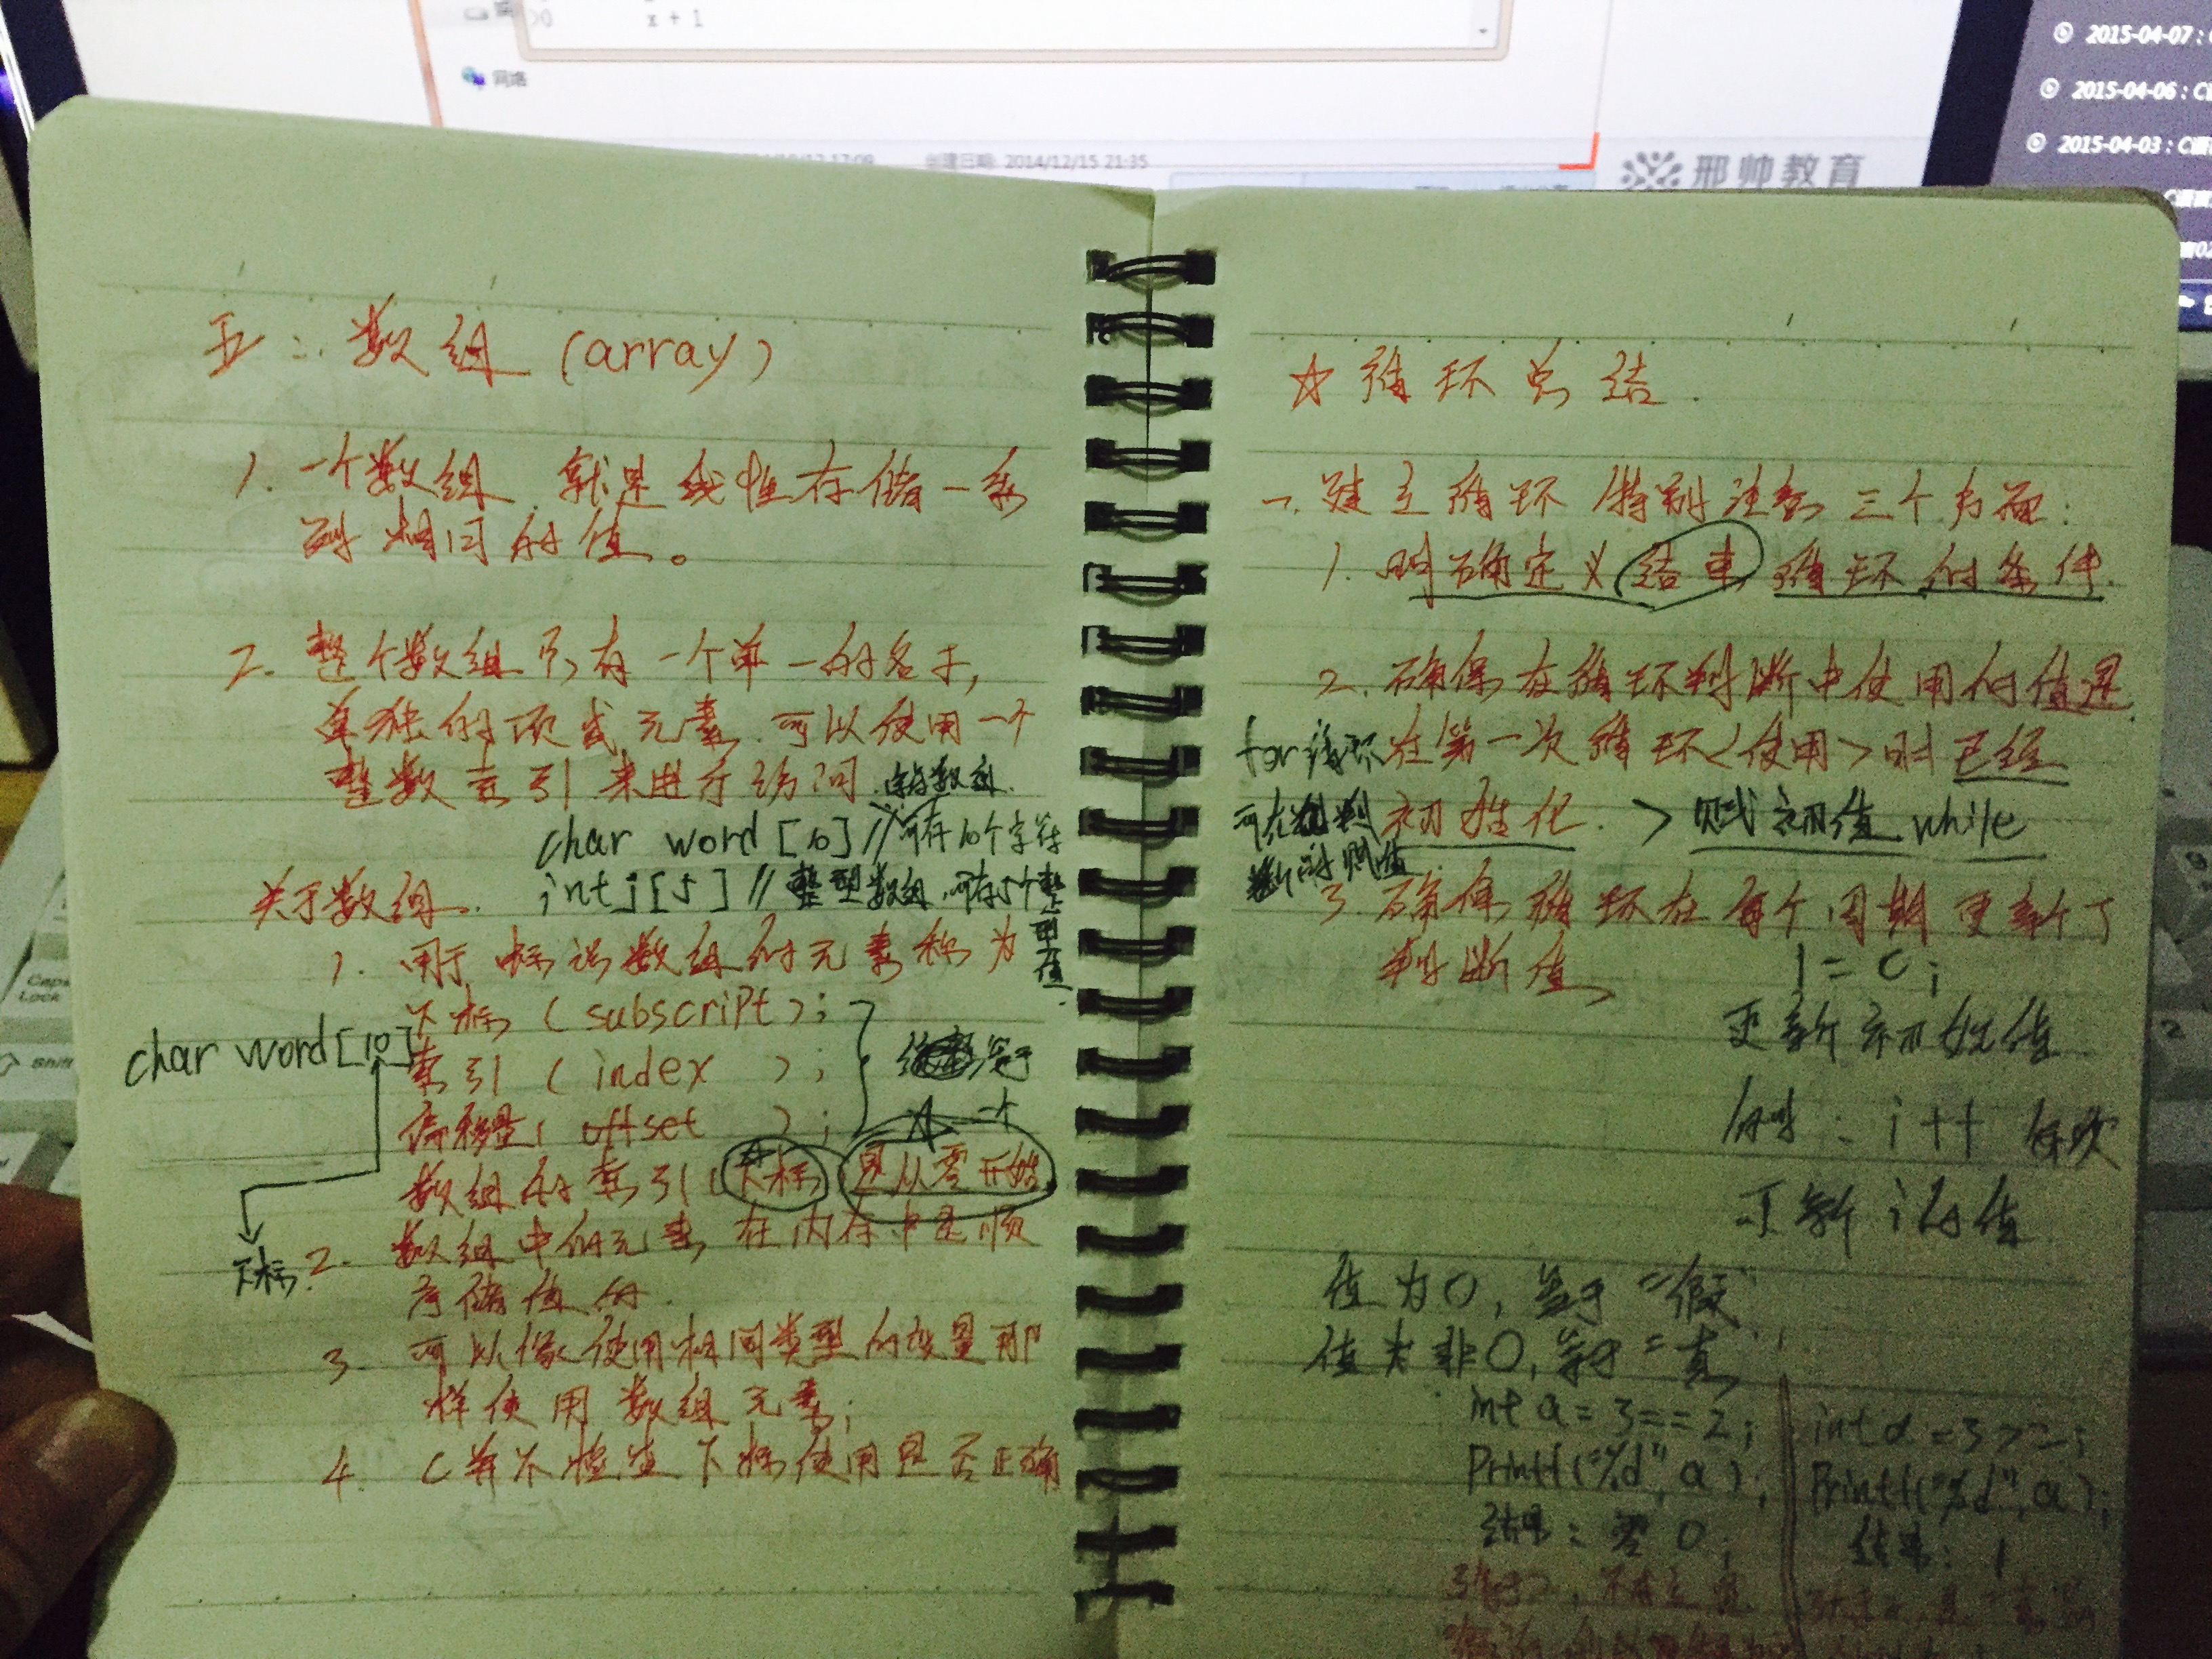 x + 1
网络
创建日期: 2014/12/15 21:35
邢帅教育
2015-04-07 : C
2015-04-06 : C语
2015-04-03 : C语
五：数组 (array)
1. 一个数组，就是线性存储一系
列相同的值。
2. 整个数组只有一个单一的名字,
单独的项或元素 可以使用一个
整数索引来进行访问.
char word [10] // 可存10个字符
int j [5] // 整型数组, 可存5个整
型
值
关于数组..
1. 用于标识数组的元素称为
下标 (subscript);
索引 (index );
偏移量( offset );
等于
一个
char word[10]
下标
数组的索引(下标 是从零开始
2. 数组中的元素，在内存中是顺
序储值的.
3. 可以像使用相同类型的变量那
样使用数组元素;
4. C并不检查下标使用是否正确
☆ 循环总结.
一. 建立循环特别注意三个方面:
1. 明确定义结束循环的条件.
2. 确保在循环判断中使用的值是
在第一次循环<使用>时已经
初始化. > 赋初值 while
for 循环
可在判
断时赋值
3. 确保循环在每个周期更新了
判断值
更新初始值
例如: i++ 每次
更新i的值
值为0, 等于"假"
值为非0, 等于"真"
int a = 3==2;
Printf("%d", a);
结果: 零 0;
int a = 3>2;
Printf("%d", a);
结果: 1